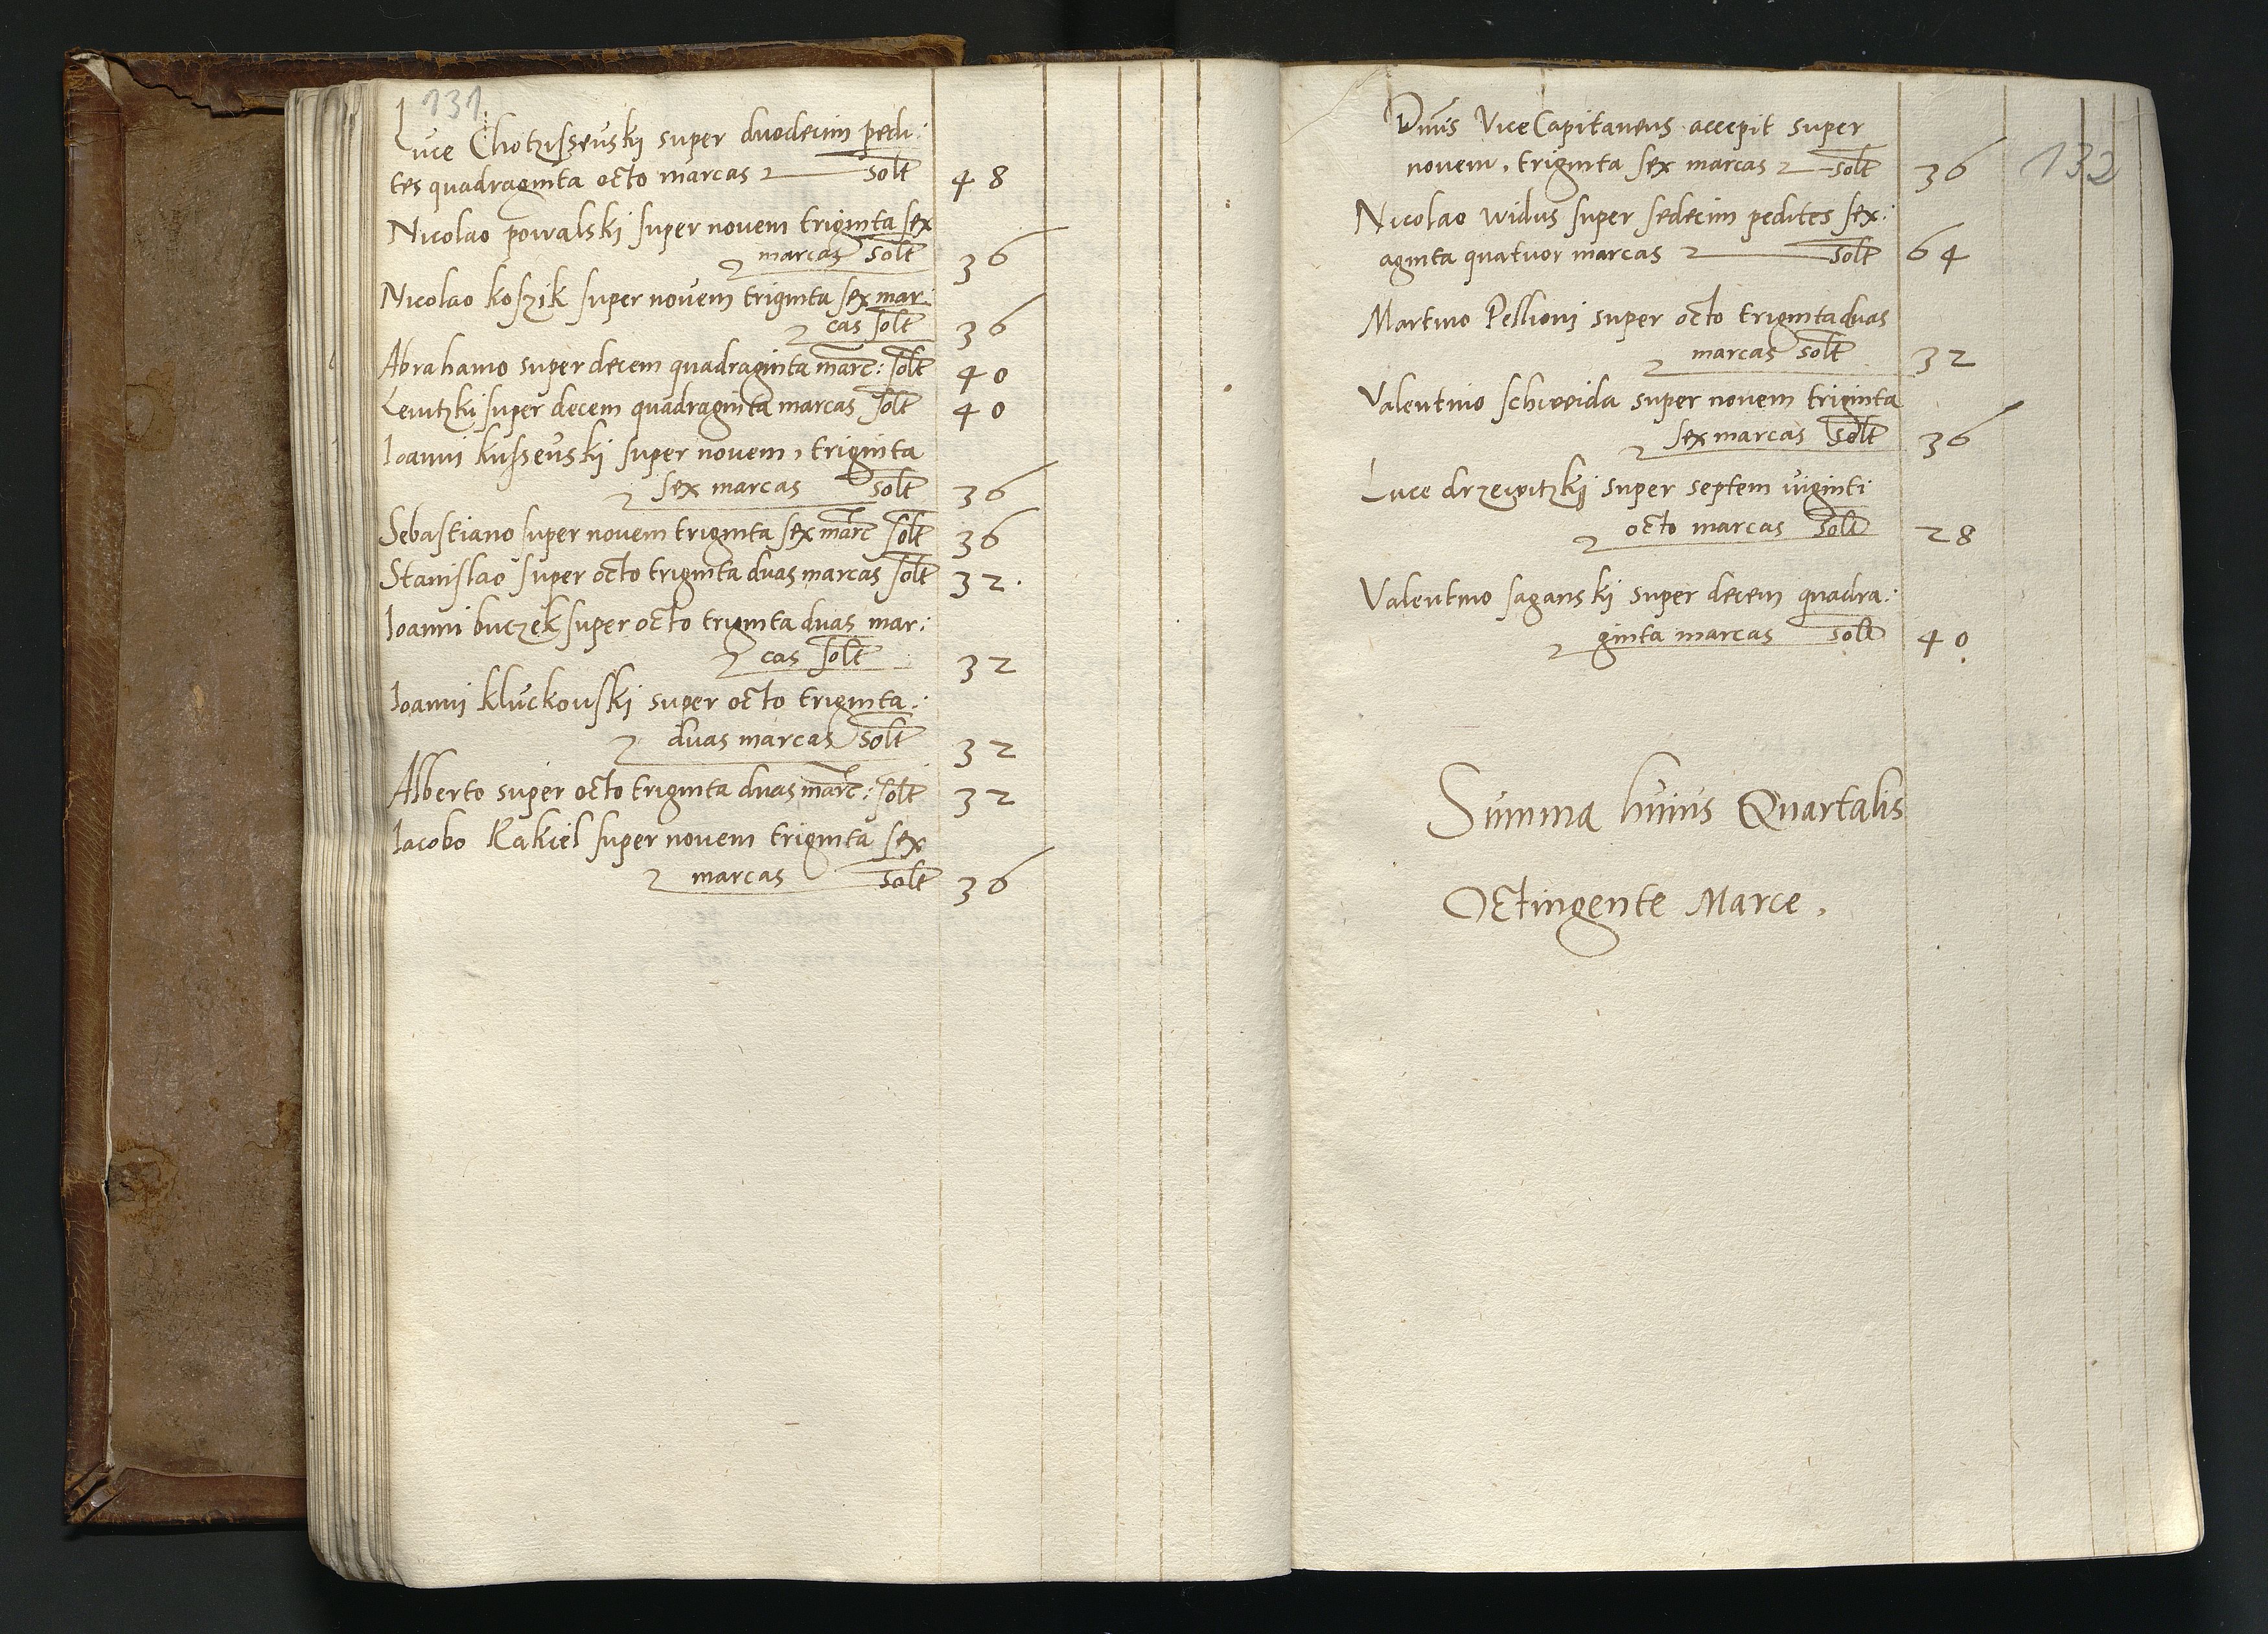 131
Luce Chotzissewskj super duodecim pedi:
tes quadraginta octo marcas solt 48
Nicolao powalskj super novem triginta sex
marcas solt 36
Nicolao koszik super novem triginta sex mar:
cas solt 36
Abrahamo super decem quadraginta marc: solt 40
Lewitzki super decem quadraginta marcas solt 40
Ioanni kussewskj super novem, triginta
sex marcas solt 36
Sebastiano super novem triginta sex marc solt 36
Stanislao super octo triginta duas marcas solt 32.
Ioanni buczek super octo triginta duas mar:
cas solt 32
Ioanni kluckouskj super octo triginta:
duas marcas solt 32
Alberto super octo triginta duas marc: solt 32
Iacobo Rakiel super novem triginta sex
marcas solt 36
Dnus ViceCapitaneus accepit super
novem, triginta sex marcas solt 36
132
Nicolao widus super sedecim pedites sex:
aginta quatuor marcas solt 64
Martino Pellionj super octo triginta duas
marcas solt 32
Valentino schweida super novem triginta
sex marcas solt 36
Luce drzewitzkj super septem viginti
octo marcas solt 28
Valentino saganskj super decem quadra:
ginta marcas solt 40
Summa huius Quartalis
Octingente Marce.